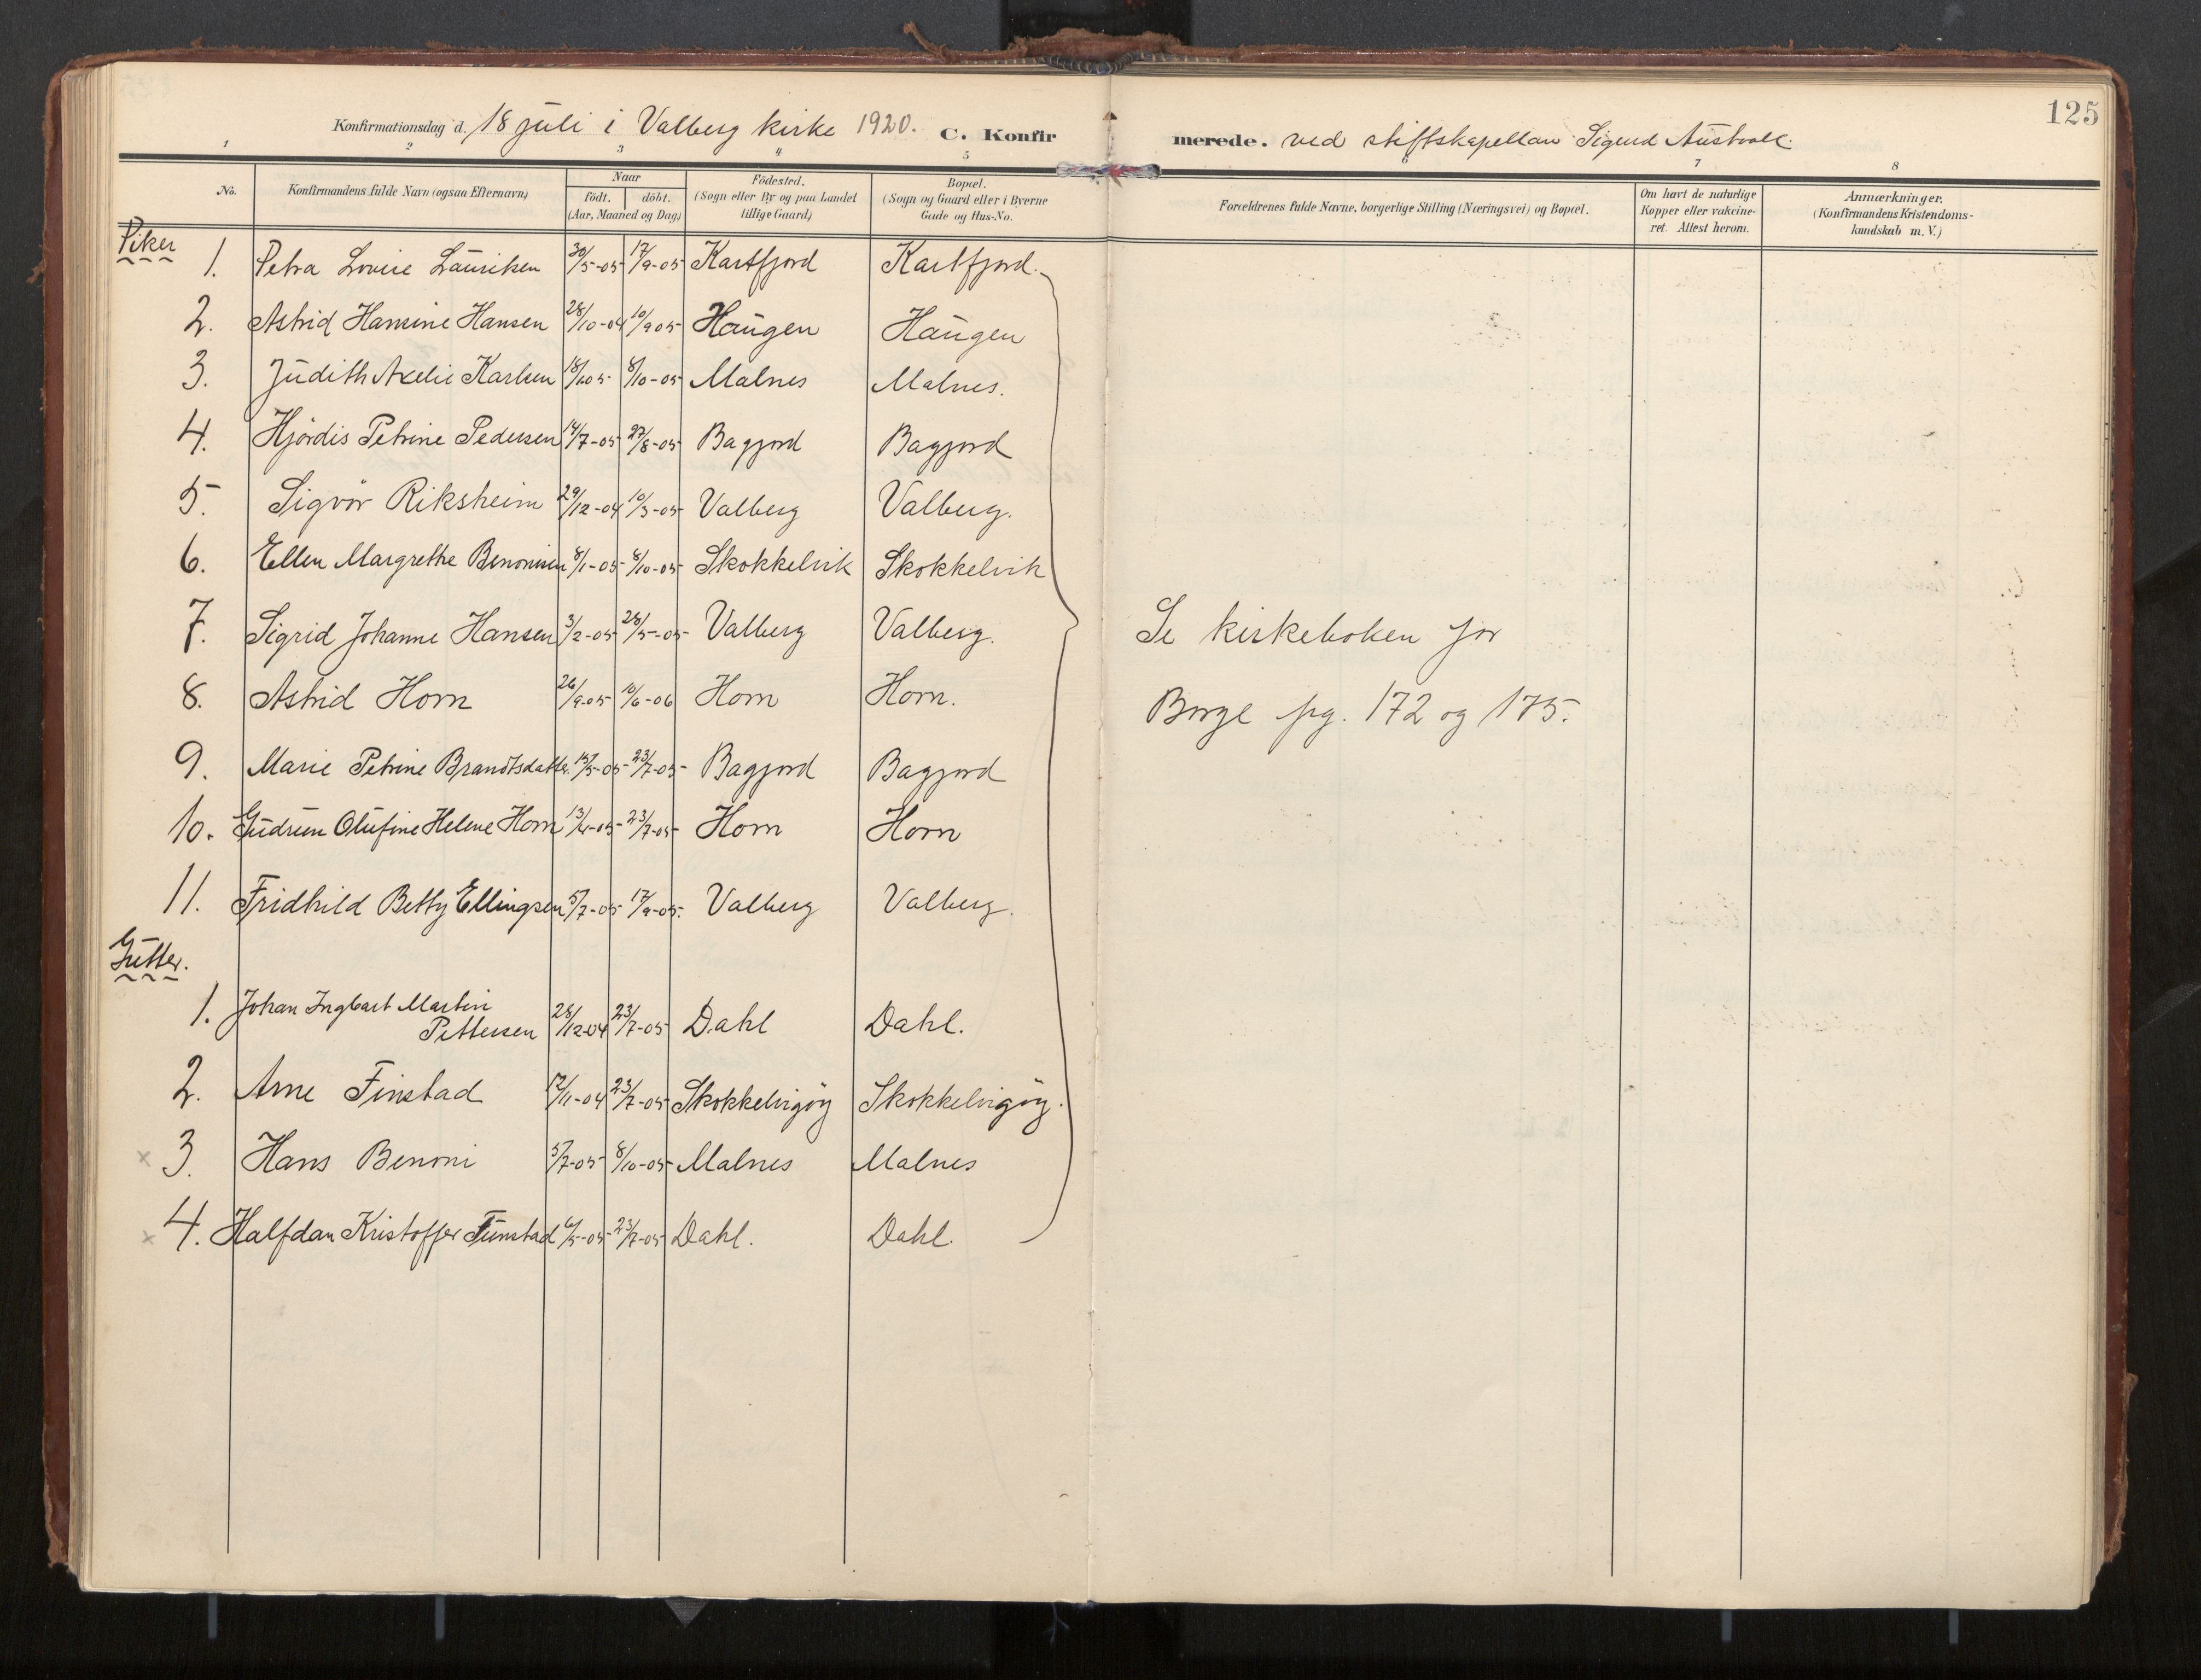 125
Konfirmationsdag d. 18 juli i Valberg kirke 1920. C. Konfirmerede. ved stiftskapellan Sigurd
1 2 3 4 5 6 7 8
No. Konfirmandens fulde Navn (ogsaa Efternavn) Naar födt. döbt. (Aar, Maaned og Dag) Födested. (Sogn eller By og paa Landet tillige Gaard) Bopæl. (Sogn og Gaard eller i Byerne Gade og Hus-No. Forældrenes fulde Navne, borgerlige Stilling (Næringsvei) og Bopæl. Om havt de naturlige Kopper eller vakcineret. Attest herom. Anmærkninger. (Konfirmandens Kristendomskundskab m. V.)
Piker
1. Petra Lovise Lauriksen 30/5-05 17/9-05 Kartfjord Kartfjord.
2. Astrid Hansine Hansen 28/10-04 10/9 05 Haugen Haugen
3. Judith Axelie Karlsen 8/10-05 Malnes Malnes.
4. Hjördis Petrine Pedersen 14/7-05 27/8-05 Bagjord Bagjord
5. Sigvör Riksheim 29/12-04 10/3-05 Valberg Valberg.
6. Ellen Margrethe Benonisen 8/1-05 8/10-05 Skokkelvik Skokkelvik
7. Sigrid Johanne Hansen 3/2-05 28/5-05 Valberg Valberg.
Se kirkeboken for
8. Astrid Horn 26/9-05 10/6-06 Horn Horn.
Borge pg. 172 og 175.
9. Marie Petrine Brandtsdatter. 14/5-05 23/7-05 Bagjord Bagjord
10. Gudrun Olufine Helene Horn 13/4-05 23/7-05 Horn Horn
11. Fridhild Betty Ellingsen 5/7-05 17/9-05. Valberg Valberg.
Gutter.
1. Johan Ingbart Martin
Pettersen 28/12-04 23/7-05 Dahl Dahl.
2. Arne Finstad 12/11-04 23/7-05 Skokkelvigöy Skokkelvigöy.
x 3. Hans Benoni 5/7-05 8/10-05 Malnes Malnes
x 4. Halfdan Kristoffer Finstad 6/5-05 23/7-05 Dahl. Dahl.